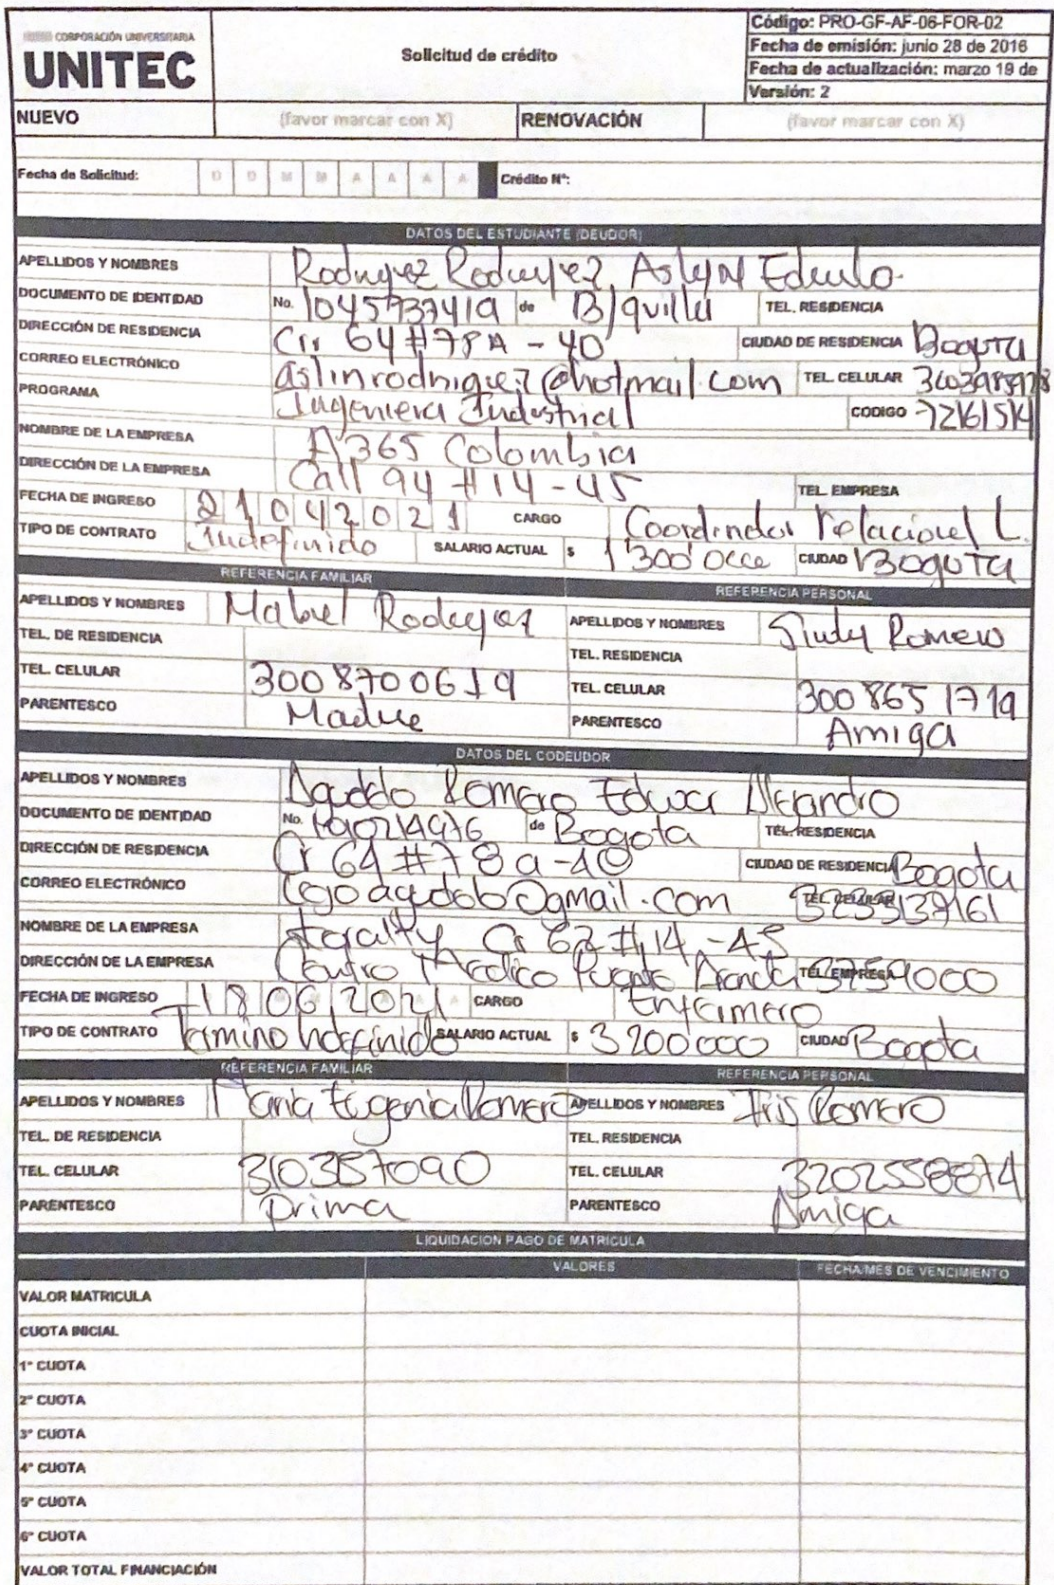 CORPORACIÓN UNIVERSITARIA
UNITEC
Solicitud de crédito
Código: PRO-GF-AF-06-FOR-02
Fecha de emisión: junio 28 de 2016
Fecha de actualización: marzo 19 de
Versión: 2
NUEVO (favor marcar con X) RENOVACIÓN (favor marcar con X)
Fecha de Solicitud: D D M M A A A A Crédito N°:
DATOS DEL ESTUDIANTE (DEUDOR)
APELLIDOS Y NOMBRES Rodriguez Rodriguez Aslyn
DOCUMENTO DE IDENTIDAD No. 1045737419 de B/quilla TEL. RESIDENCIA
DIRECCIÓN DE RESIDENCIA Crr 64 #78A - 40 CIUDAD DE RESIDENCIA Bogota
CORREO ELECTRÓNICO aslinrodriguez@hotmail.com TEL. CELULAR
PROGRAMA Ingeniera Industrial CODIGO 72161514
NOMBRE DE LA EMPRESA A365 Colombia
DIRECCIÓN DE LA EMPRESA Call 94 #14-45 TEL. EMPRESA
FECHA DE INGRESO 21042021 CARGO Coordindor relacionel L.
TIPO DE CONTRATO Indefinido SALARIO ACTUAL $ 1'300'000 CIUDAD Bogota
REFERENCIA FAMILIAR REFERENCIA PERSONAL
APELLIDOS Y NOMBRES Mabel Rodriguez APELLIDOS Y NOMBRES Romero
TEL. DE RESIDENCIA TEL. RESIDENCIA
TEL. CELULAR 3008700619 TEL. CELULAR 3008651719
PARENTESCO Madre PARENTESCO Amiga
DATOS DEL CODEUDOR
APELLIDOS Y NOMBRES Agudelo Romero Alejandro
DOCUMENTO DE IDENTIDAD No. de Bogota TEL. RESIDENCIA
DIRECCIÓN DE RESIDENCIA Cr 64 #78a-40 CIUDAD DE RESIDENCIA Bogota
CORREO ELECTRÓNICO TEL. CELULAR 3233137161
NOMBRE DE LA EMPRESA Cr 62 #14-45
DIRECCIÓN DE LA EMPRESA Centro Medico Puente Aranda TEL. EMPRESA
FECHA DE INGRESO 18062021 CARGO Enfermero
TIPO DE CONTRATO Termino Indefinido SALARIO ACTUAL $ 3200000 CIUDAD Bogota
REFERENCIA FAMILIAR REFERENCIA PERSONAL
APELLIDOS Y NOMBRES Maria Eugenia Romero APELLIDOS Y NOMBRES Iris Romero
TEL. DE RESIDENCIA TEL. RESIDENCIA
TEL. CELULAR 310357090 TEL. CELULAR 3202558874
PARENTESCO Prima PARENTESCO Amiga
LIQUIDACION PAGO DE MATRICULA
VALORES FECHA/MES DE VENCIMIENTO
VALOR MATRICULA
CUOTA INICIAL
1° CUOTA
2° CUOTA
3° CUOTA
4° CUOTA
5° CUOTA
6° CUOTA
VALOR TOTAL FINANCIACIÓN